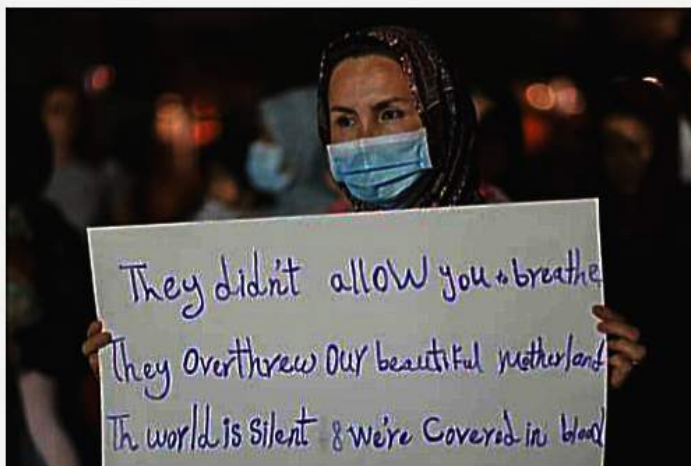 They didn't allow you to breathe
They overthrew our beautiful motherland
Th world is silent & we're covered in blood